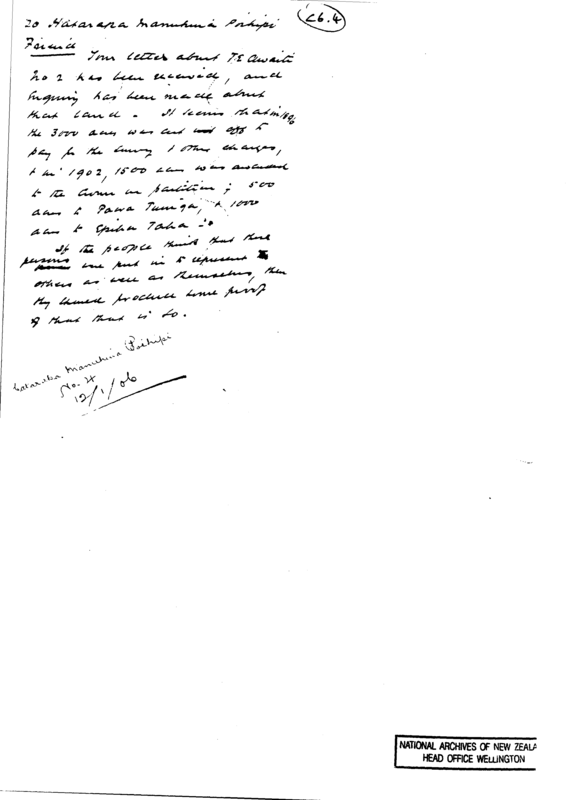 To Hakaraka Manuhuia Poihipi
C6.4
Friend
Your letter about Te Awaiti
No 2 has been received, and
Enquiry has been made about
that land. It seems that in 1896
the 3000 acres was cut off to
pay for the survey & other charges,
& in 1902, 1500 acres was awarded
to the Crown on partition; 500
acres to Paora, & 1000
acres to Epiha Taha
If the people think that these
persons were put in to represent
others as well as themselves, then
they should produce some proof
of that that is so.
Hakaraka Manuhuia Poihipi
No. 4
12/1/06
NATIONAL ARCHIVES OF NEW ZEALA
HEAD OFFICE WELLINGTON